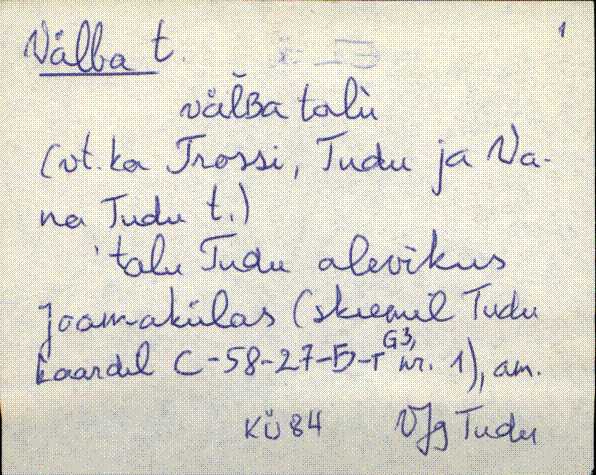 1
Välba t.
väl̆Ba talù
(vt. ka Trossi, Tudu ja Va-
na Tudu t.)
'talu Tudu alevikus
Joamakülas (skeemil Tudu
kaardil C-58-27-Б-г G3, nr. 1), am.
KÜ 84 VJg Tudu